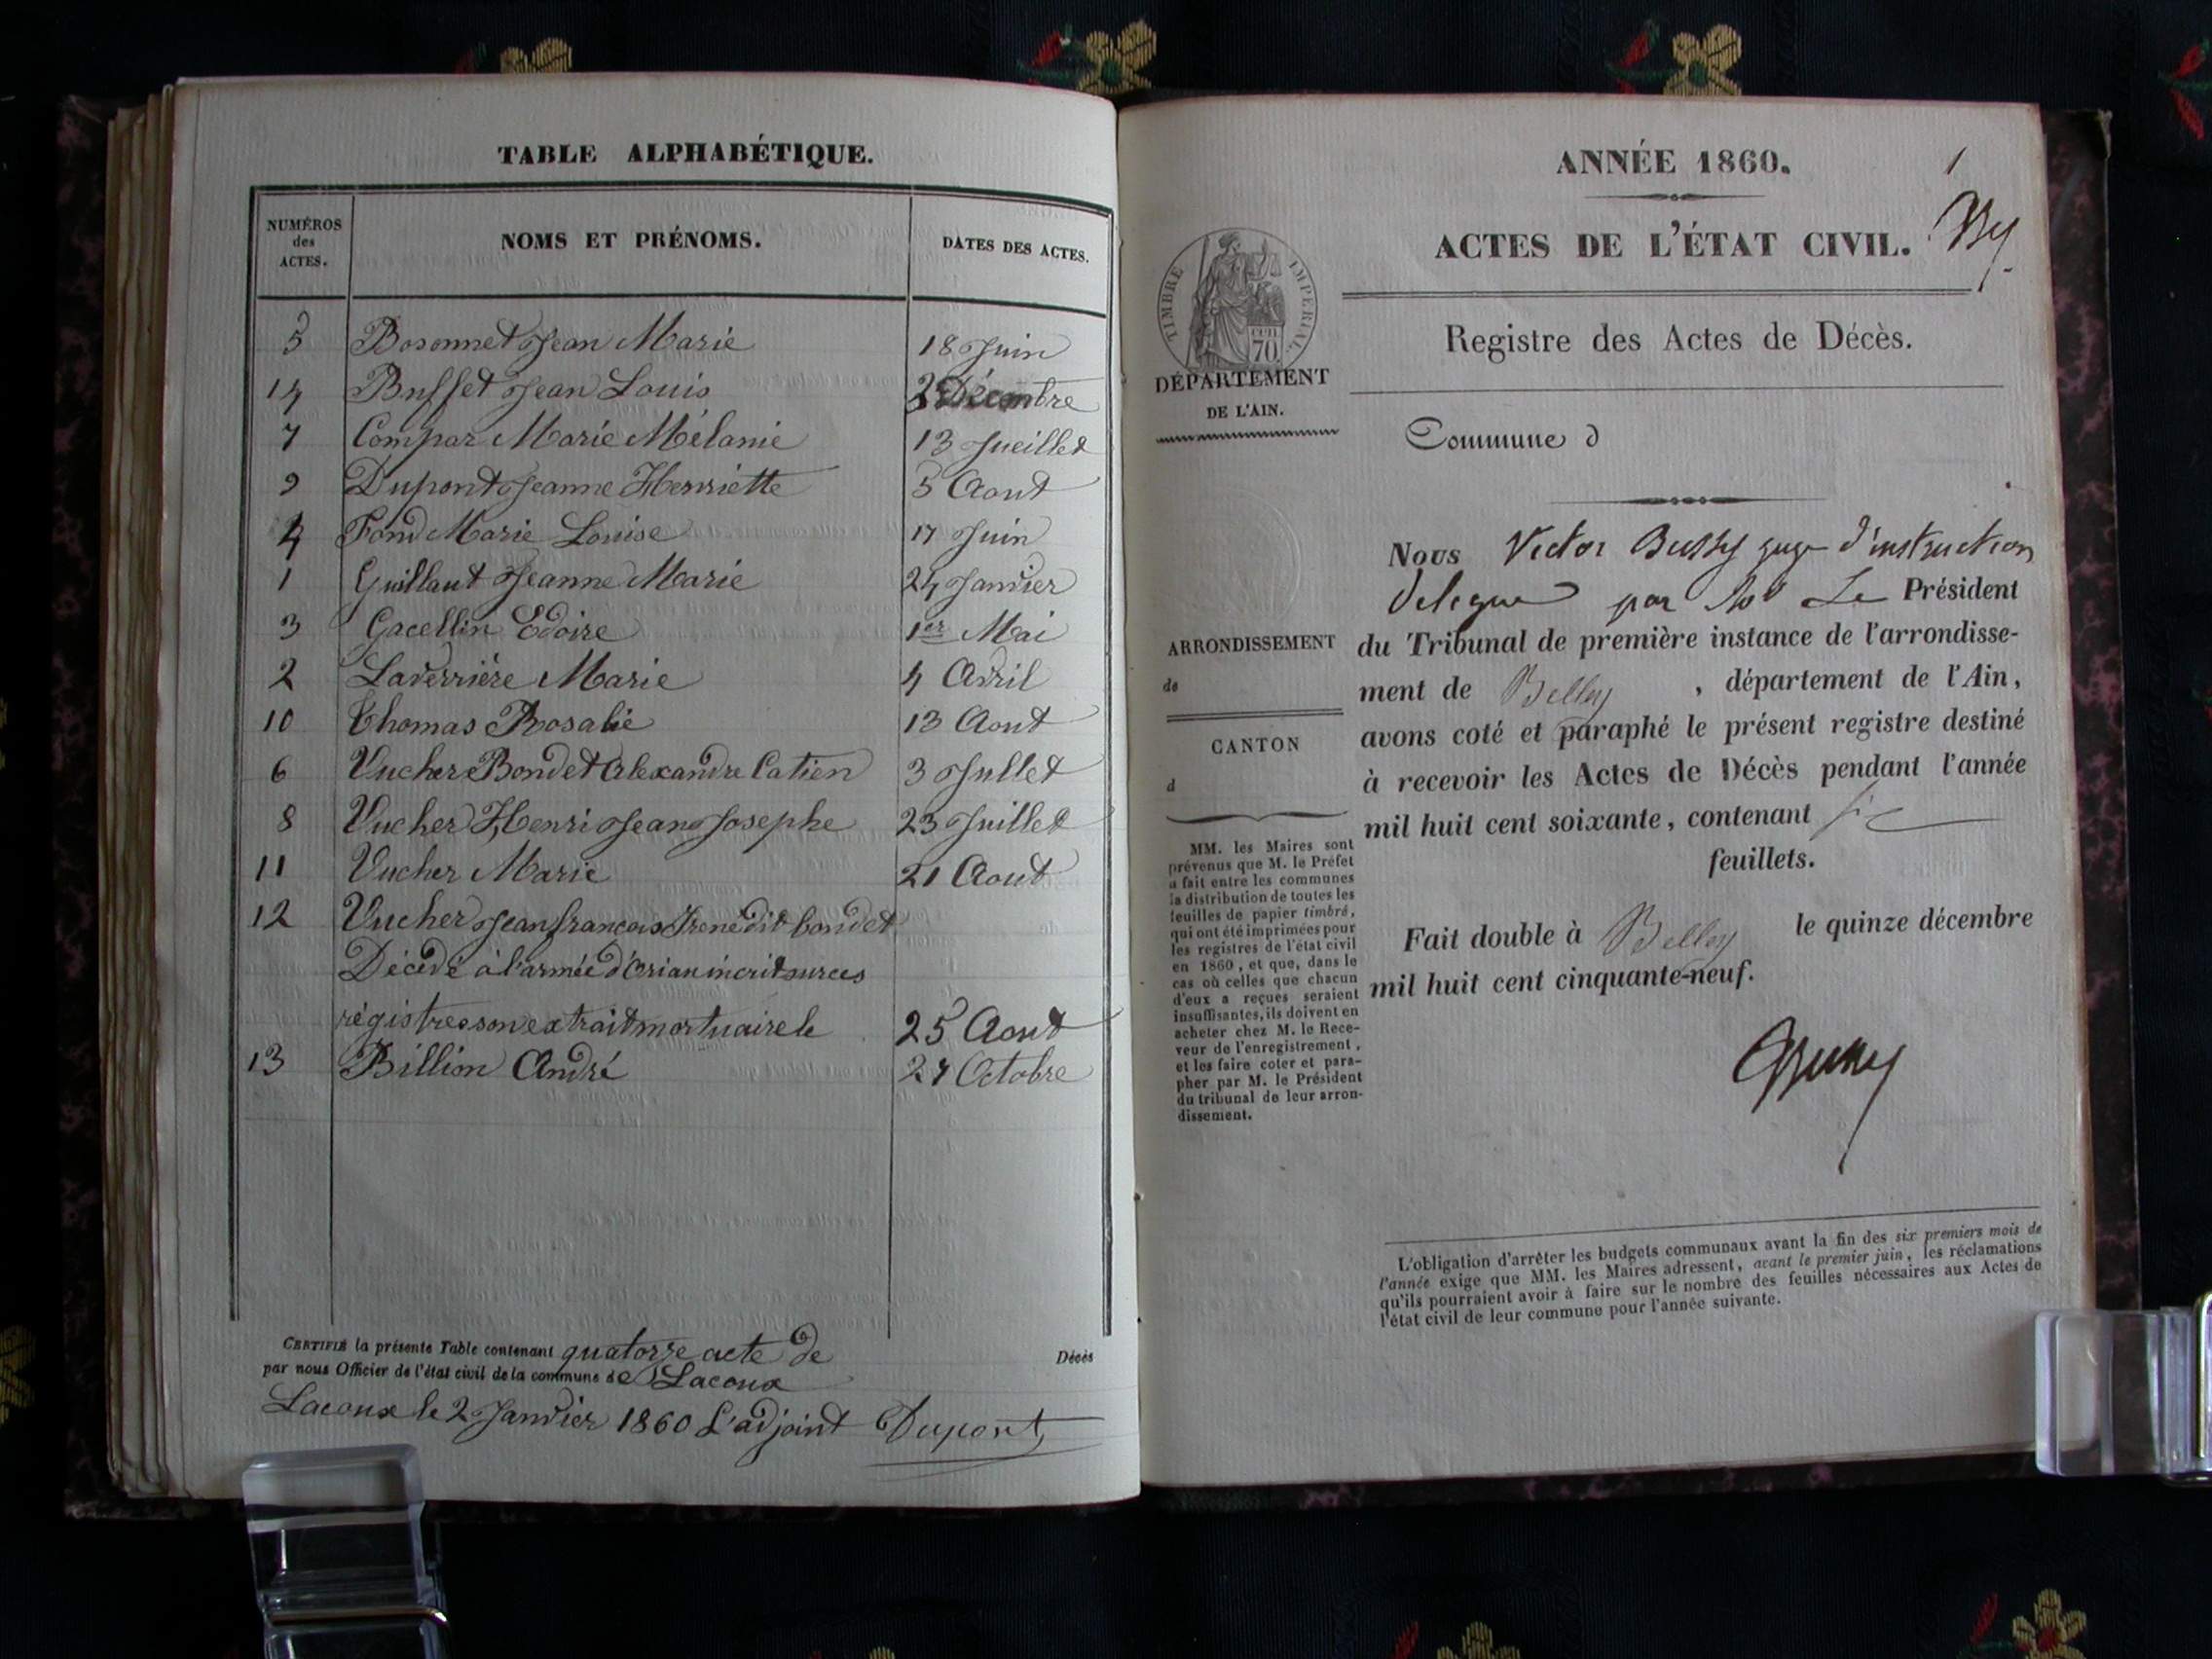 TABLE ALPHABÉTIQUE.
NUMÉROS des ACTES. NOMS ET PRÉNOMS. DATES DES ACTES.
5 Bosonnet Jean Marie 18 Juin
14 Buffet Jean Louis 3 Décembre
7 Compar Marie Mélanie 13 Jueillet
9 Dupont Jeanne Henriette 5 Aout
4 Fond Marie Louise 17 Juin
1 Guillaut Jeanne Marie 24 Janvier
3 Gacellin Edoire 1er Mai
2 Laverrière Marie 4 Avril
10 Thomas Rosalie 13 Aout
6 Vucher Bondet Alexandre Catien 3 Jullet
8 Vucher Henri Jean Josephe 23 Juillet
11 Vucher Marie 21 Aout
12 Vucher Jean françois Irené dit bondet
Décédé à l'armée d'orian incrit sur ces
régistres son extrait mortuaire le 25 Aout
13 Billion André 27 Octobre
CERTIFIÉ la présente Table contenant quatorze acte de Décès
par nous Officier de l'état civil de la commune de Lacoux
Lacoux le 2 Janvier 1860 L'adjoint Dupont
1
ANNÉE 1860.
ACTES DE L'ÉTAT CIVIL.
By
Registre des Actes de Décès.
TIMBRE IMPÉRIAL
cen
70
DÉPARTEMENT
DE L'AIN.
Commune d
ARRONDISSEMENT
de
CANTON
d
MM. les Maires sont
prévenus que M. le Préfet
a fait entre les communes
la distribution de toutes les
feuilles de papier timbré,
qui ont été imprimées pour
les registres de l'état civil
en 1860, et que, dans le
cas où celles que chacun
d'eux a reçues seraient
insuffisantes, ils doivent en
acheter chez M. le Rece-
veur de l'enregistrement,
et les faire coter et para-
pher par M. le Président
du tribunal de leur arron-
dissement.
Nous Victor Bussy juge d'instruction
délégué par Mr Le Président
du Tribunal de première instance de l'arrondisse-
ment de Belley, département de l'Ain,
avons coté et paraphé le présent registre destiné
à recevoir les Actes de Décès pendant l'année
mil huit cent soixante, contenant six
feuillets.
Fait double à Belley le quinze décembre
mil huit cent cinquante-neuf.
L'obligation d'arrêter les budgets communaux avant la fin des six premiers mois de
l'année exige que MM. les Maires adressent, avant le premier juin, les réclamations
qu'ils pourraient avoir à faire sur le nombre des feuilles nécessaires aux Actes de
l'état civil de leur commune pour l'année suivante.